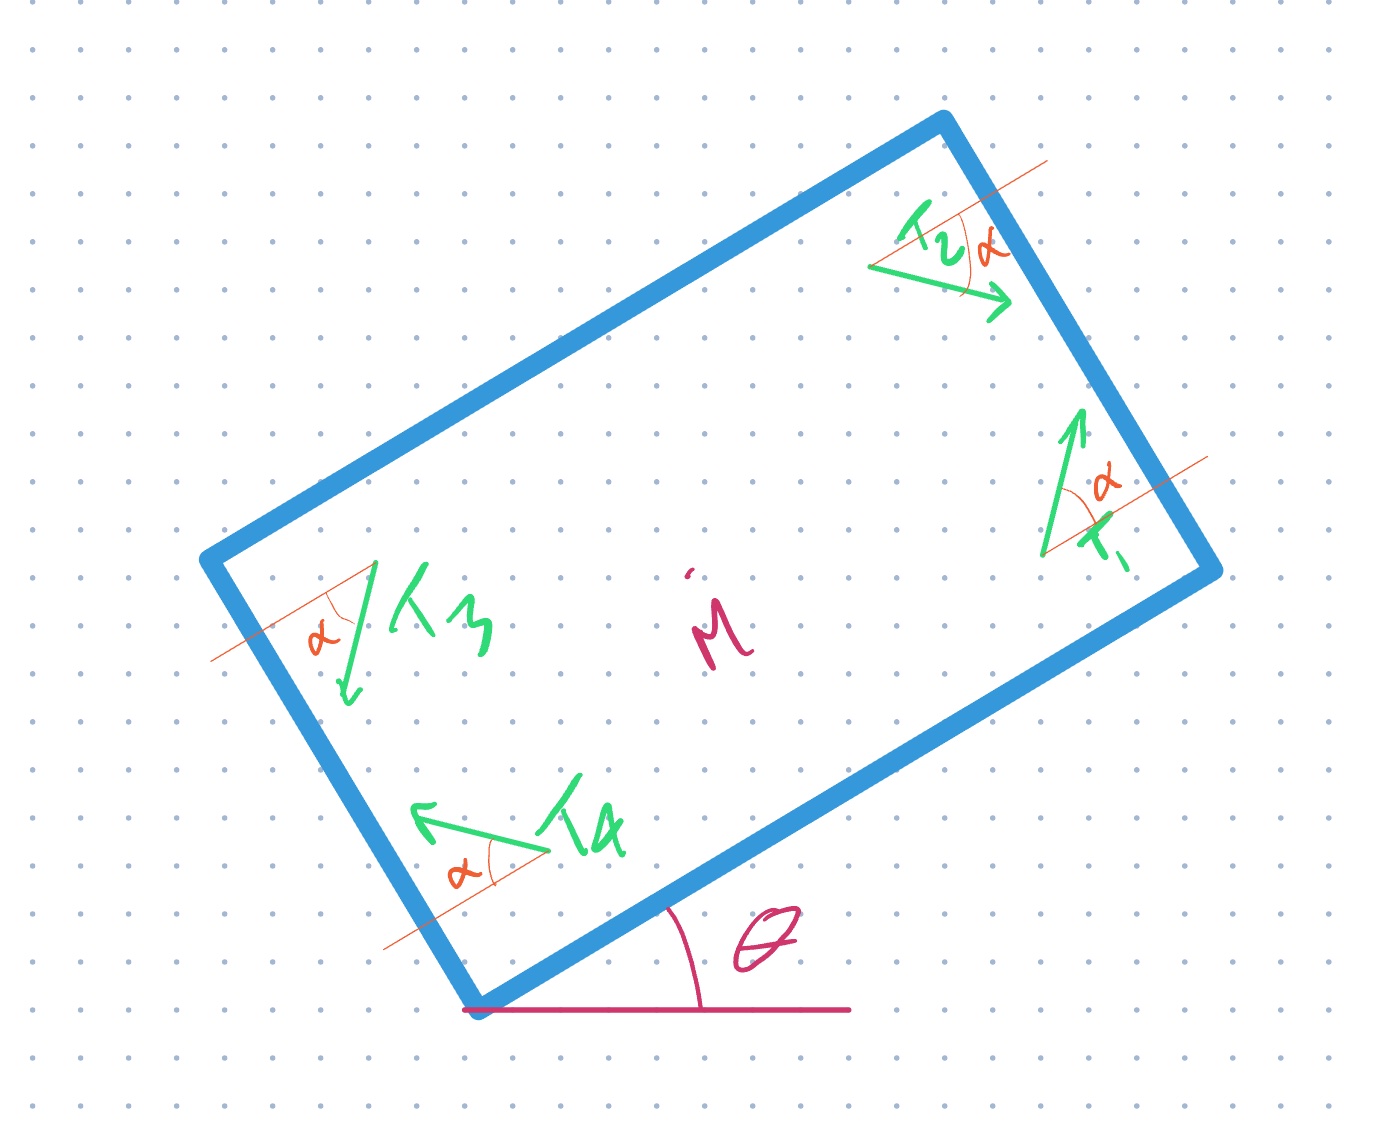 T2
α
α
T1
α
T3
M
T4
α
θ